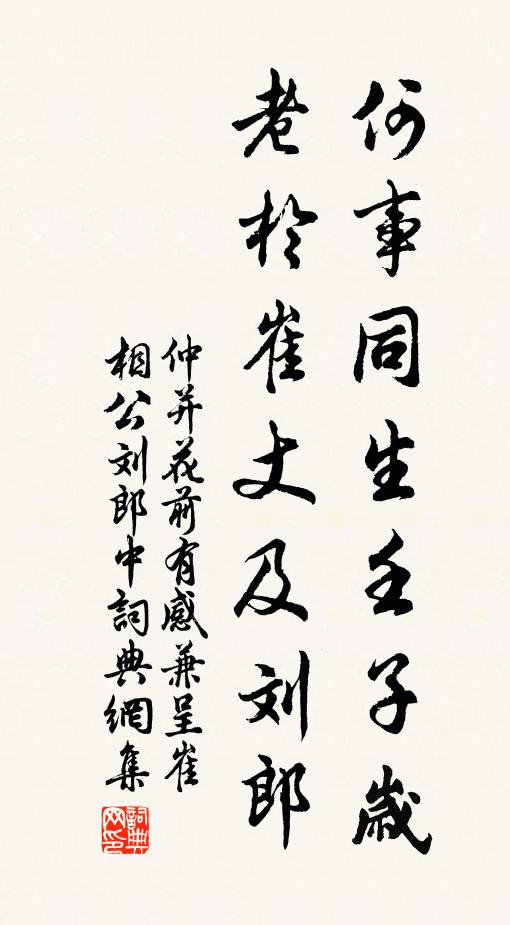 何事同生壬子歲
老於崔丈及刘郎
仲并花前有感兼呈崔
相公刘郎中詞典網集
詞典
网印